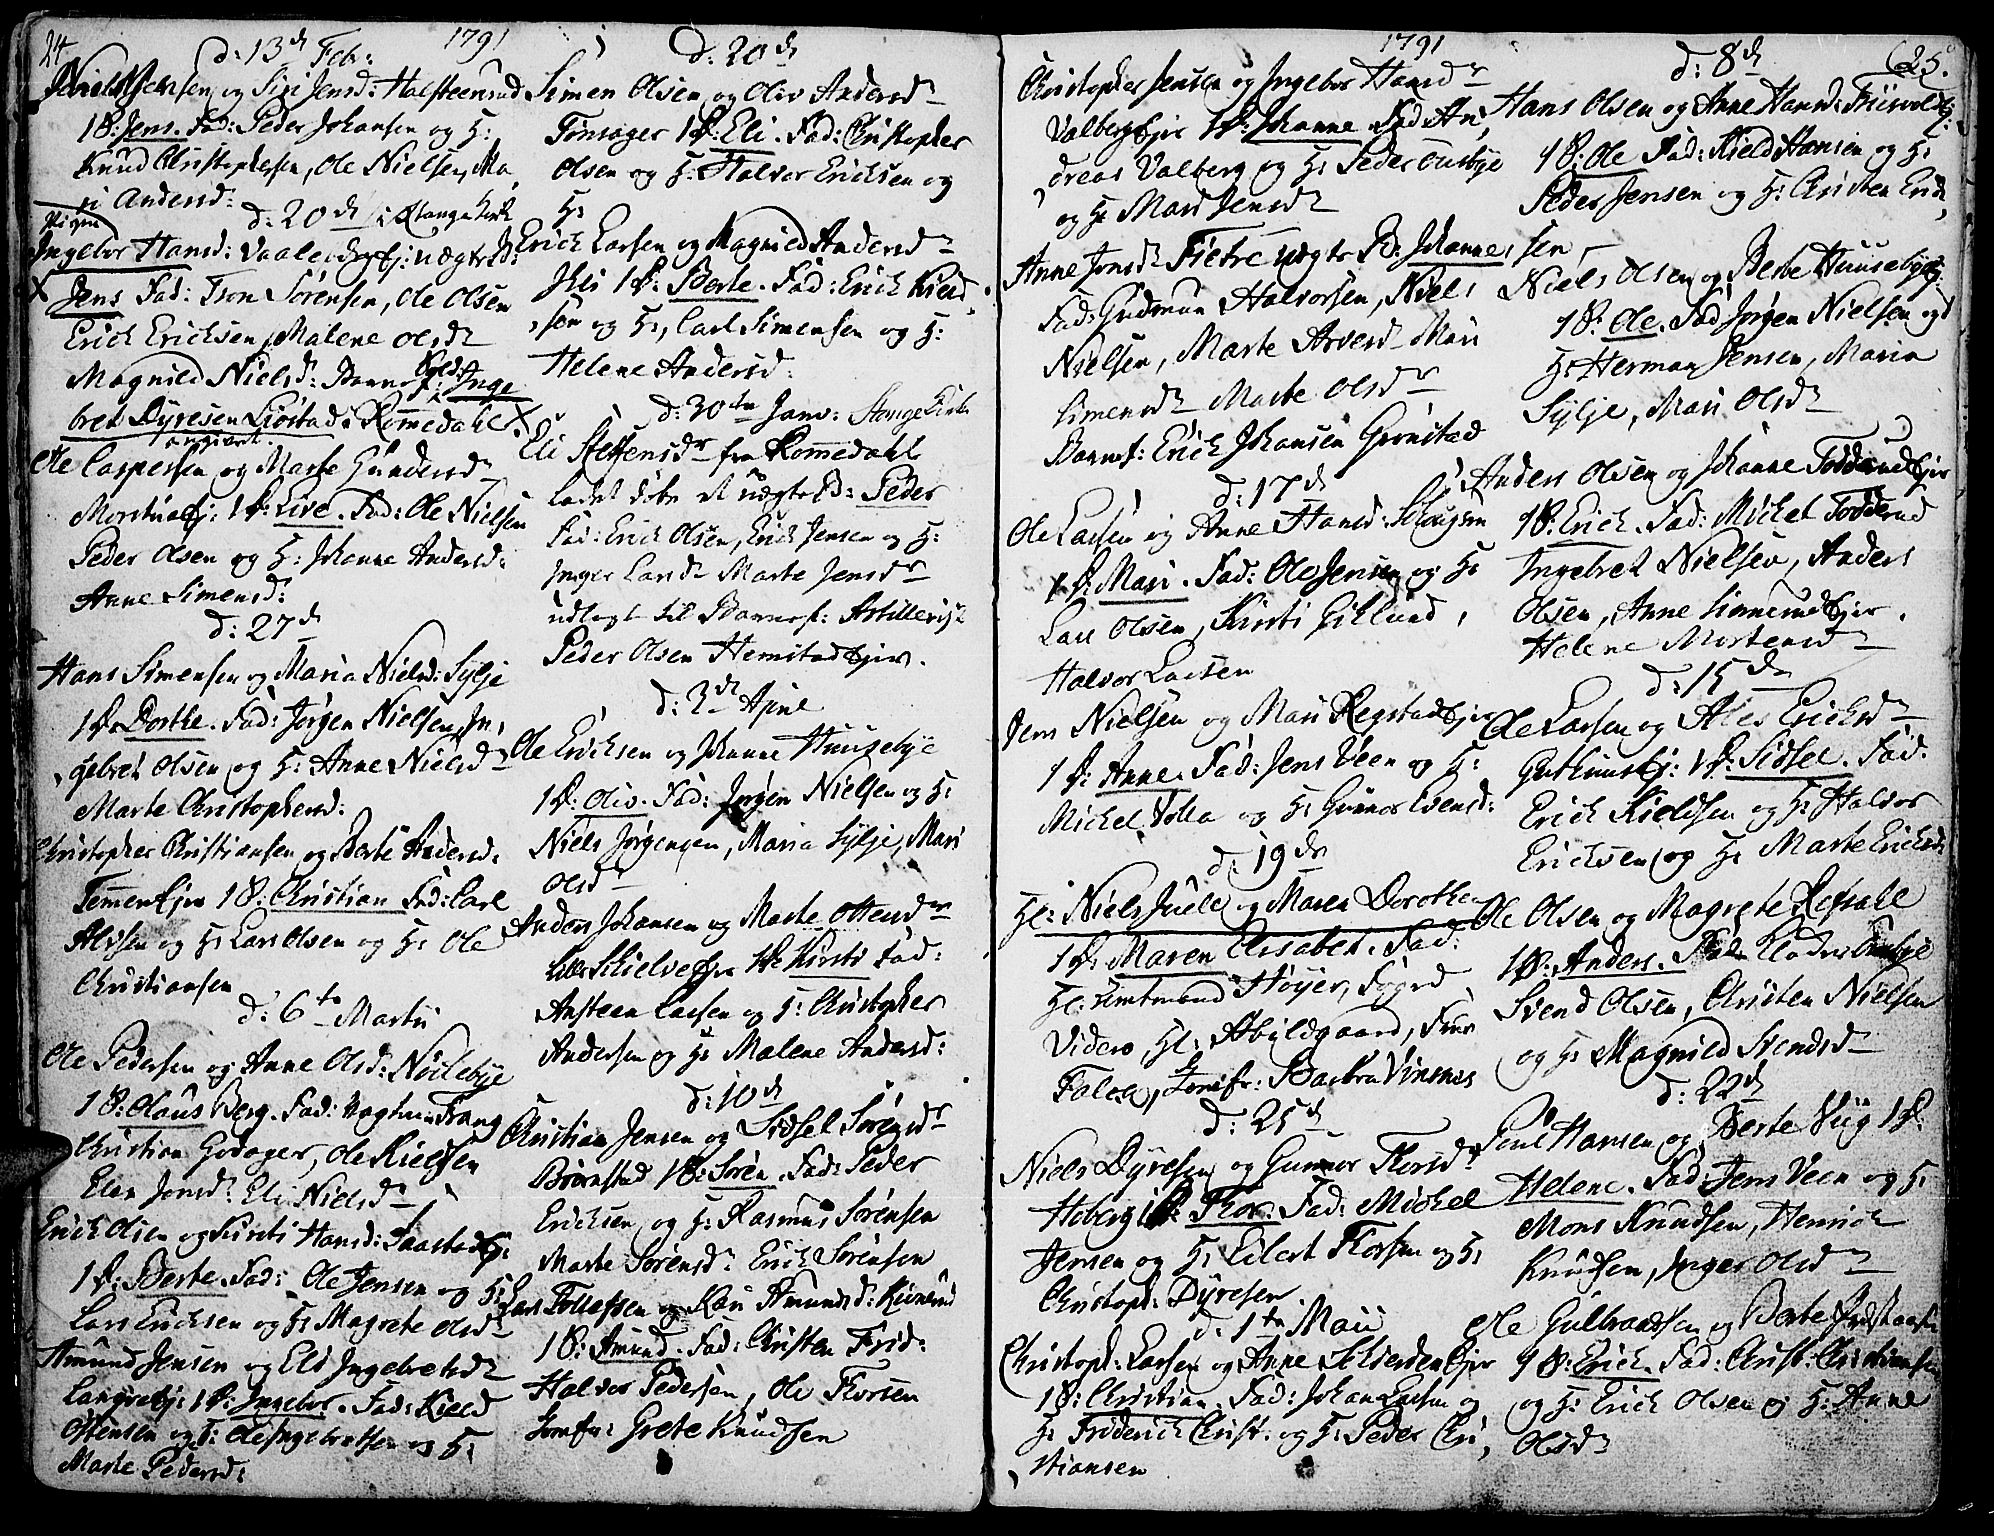 24
1791
d: 13de Febr:
Niels Jensen og Siri Jensd: Halsteensrud
1 B: Jens. Fad: Peder Johansen og H:
Knud Christophersen, Ole Nielsen, Ma
ri Andersd:
d: 20de i Stange Kirk
Pigen
Ingebor Hansd: Vaaler Ejer: uægte B:
Jens Fad: Iron Sörensen, Ole Olsen
Erich Erichsen, Malene Olsdr
Magnild Nielsd: Barnef: Inge
bret Dyresen Siöstad i Romedahl
angivet.
Ole Caspersen og Marte Gundersdr
Morstuej: 1 P: Live. Fad: Ole Nielsen
Peder Olsen og H: Johanne Andersd:
Anne Simensd:
d: 27de
Hans Simensen og Maria Nielsd: Sylje
1 P: Dorthe. Fad: Jörgen Nielsen, In,
gebret Olsen og H: Anne Nielsdr
Marte Christophersd:
Christopher Christiansen og Berte Andersd:
Temmen Ejer 1 B: Christian Fad: Carl
Alfsen og H: Lars Olsen og H: Ole
Christiansen
d: 6te Martii
Ole Pedersen og Anne Olsd: Nöclebye
1 B: Olaus Berg. Fad: Vagtm: Frang
Christian Godager, Ole Kieldsen
Elen Jonsd: Eli Nielsdr
Erich Olsen og Kirsti Hansd: Saastad Ej:
1 P: Berte. Fad: Ole Jensen og H:
Lars Erichsen og H: Magrete Olsdr
Amund Jensen og Eli Ingebretsdr
Langseth: 1 P: Ingebor. Fad: Kield
Ostensen og H: Ole Ingebretsen og H:
Marte Pedersd:
d: 20de
Simen Olsen og Oliv Andersdr
Tönsager 1 P: Eli. Fad: Christopher
Olsen og H: Halvor Erichsen og
H:
Erich Larsen og Magnild Andersdr
1 P: Berte. Fad: Erich Kield
sön og H:, Carl Simensen og H:
Helene Andersd:
d: 30te Janv: Stange Kirke
Eli Steffensdr fra Romedahl
ladet döbe et uægte B: Peder
Fad: Erich Olsen, Erich Jensen og H:
Inger Larsdr Marte Jensdr
udlagt til Barnef: Artillerist
Peder Olsen Hemstad Ejer.
d: 3de Aprile
Ole Erichsen og Johanne Huusebye
1 P: Oliv. Fad: Jörgen Nielsen og H:
Niels Jörgensen, Maria Sylje, Mari
Olsdr
Anders Johansen og Marte Ottersdr
Lille Schielve Ejer 1 P: Kirsti Fad:
Ansteen Larsen og H: Christopher
Andersen og H: Malene Andersd:
d: 10de
Christian Jensen og Sidsel Sörensdr
Biörnstad 1 B: Sören. Fad: Peder
Ericksen og H: Rasmus Sörensen
Marte Sörensdr Erich Sörensen
Lars Tollefsen og Kari Amundsd: Kiönerud
1 B: Amund. Fad: Christen Frid:
Halvor Pedersen, Ole Thorsen
Jomfru: Grete Knudsen
1791
25.
Christopher Jensen og Ingebor Hansdr
Valberg Ejer 1 P: Johanne Fad: An,
dreas Valberg og H: Peder Ousbye
og H: Mari Jensdr
Anne Jonsdr Fietre uægte B: Johannes
Fad: Gudmun Halvorsen, Niels
Nielsen, Marte Arvesdr Mari
Simensdr Marte Olsdr
Barnef: Erich Johansen Grönstad
d: 17de
Ole Larsen og Anne Hansd:
1 P: Mari. Fad: Ole Jensen og H:
Lars Olsen, Kirsti Giklund,
Halvor Larsen
Jens Nielsen og Mari Regstad Ejer
1 P: Anne. Fad: Jens Veen og H:
Michel Volla og H: Gunnor Evensd:
d: 19de
Hl: Niels Juell og Maren Dorothea
1 P: Maren Elisabet. Fad:
Hl: Amtmand Höyer, Foged
Videro, Hl: Abildgaard, Frue
Falck, Jomfr: Barbra Vinsnes
d: 25de
Niels Dyresen og Gunnor Thorsdr
Hoberg 1 B: Thor. Fad: Michel
Jensen og H: Eilert Thorsen og H:
Christoph: Dyresen.
d: 1te Maii
Christoph: Larsen og Anne Schierden Ejer
1 B: Christian. Fad: Johan Larsen og
H: Friderich Christ: og H: Peder Chri,
stiansen
d: 8de
Hans Olsen og Anne Hansd: Friisvold Ej:
1 B: Ole Fad: Kield Hansen og H:
Peder Jensen og H: Christen Erich
sen
Niels Olsen og Berte Huusebye Ej:
1 B: Ole. Fad: Jörgen Nielsen og
H: Herman Jensen, Maria
Sylje, Mari Olsdr
Anders Olsen og Johanne Tödderud Ejer
1 B: Erich. Fad: Michel Tödderud
Ingebret Nielsen, Anders
Olsen, Anne Simmerud Ejer,
Helene Mortensdr
d: 15de
Ole Larsen og Ales Ericksdr
Guthuus Ej: 1 P: Sidsel. Fad:
Erich Kieldsen og H: Halvor
Ericksen og H: Marte Ericksd:
Ole Olsen og Magrete Refsahl
1 B: Anders. Fad:
Svend Olsen, Christen Nielsen
og H: Magnild Svendsdr
d: 22de
Poul Hansen og Berte Viig 1 P:
Helene. Fad: Jens Veen og H:
Mons Knudsen, Henrich
Knudsen, Inger Olsdr
Ole Gulbrandsen og Berte
1 B: Erich. Fad: Christ: Christiansen
og H: Erich Olsen og H: Anne
Olsdr